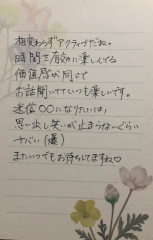 相変わらずアクティブだね。
時間を有効に楽しんでる
価値感が同じで
お話聞いててていつも楽しいです。
迷信〇〇になりたいは、
思い出し笑いが止まらないぐらい
ヤバい(爆)
またいつでもお待ちしてますね♡